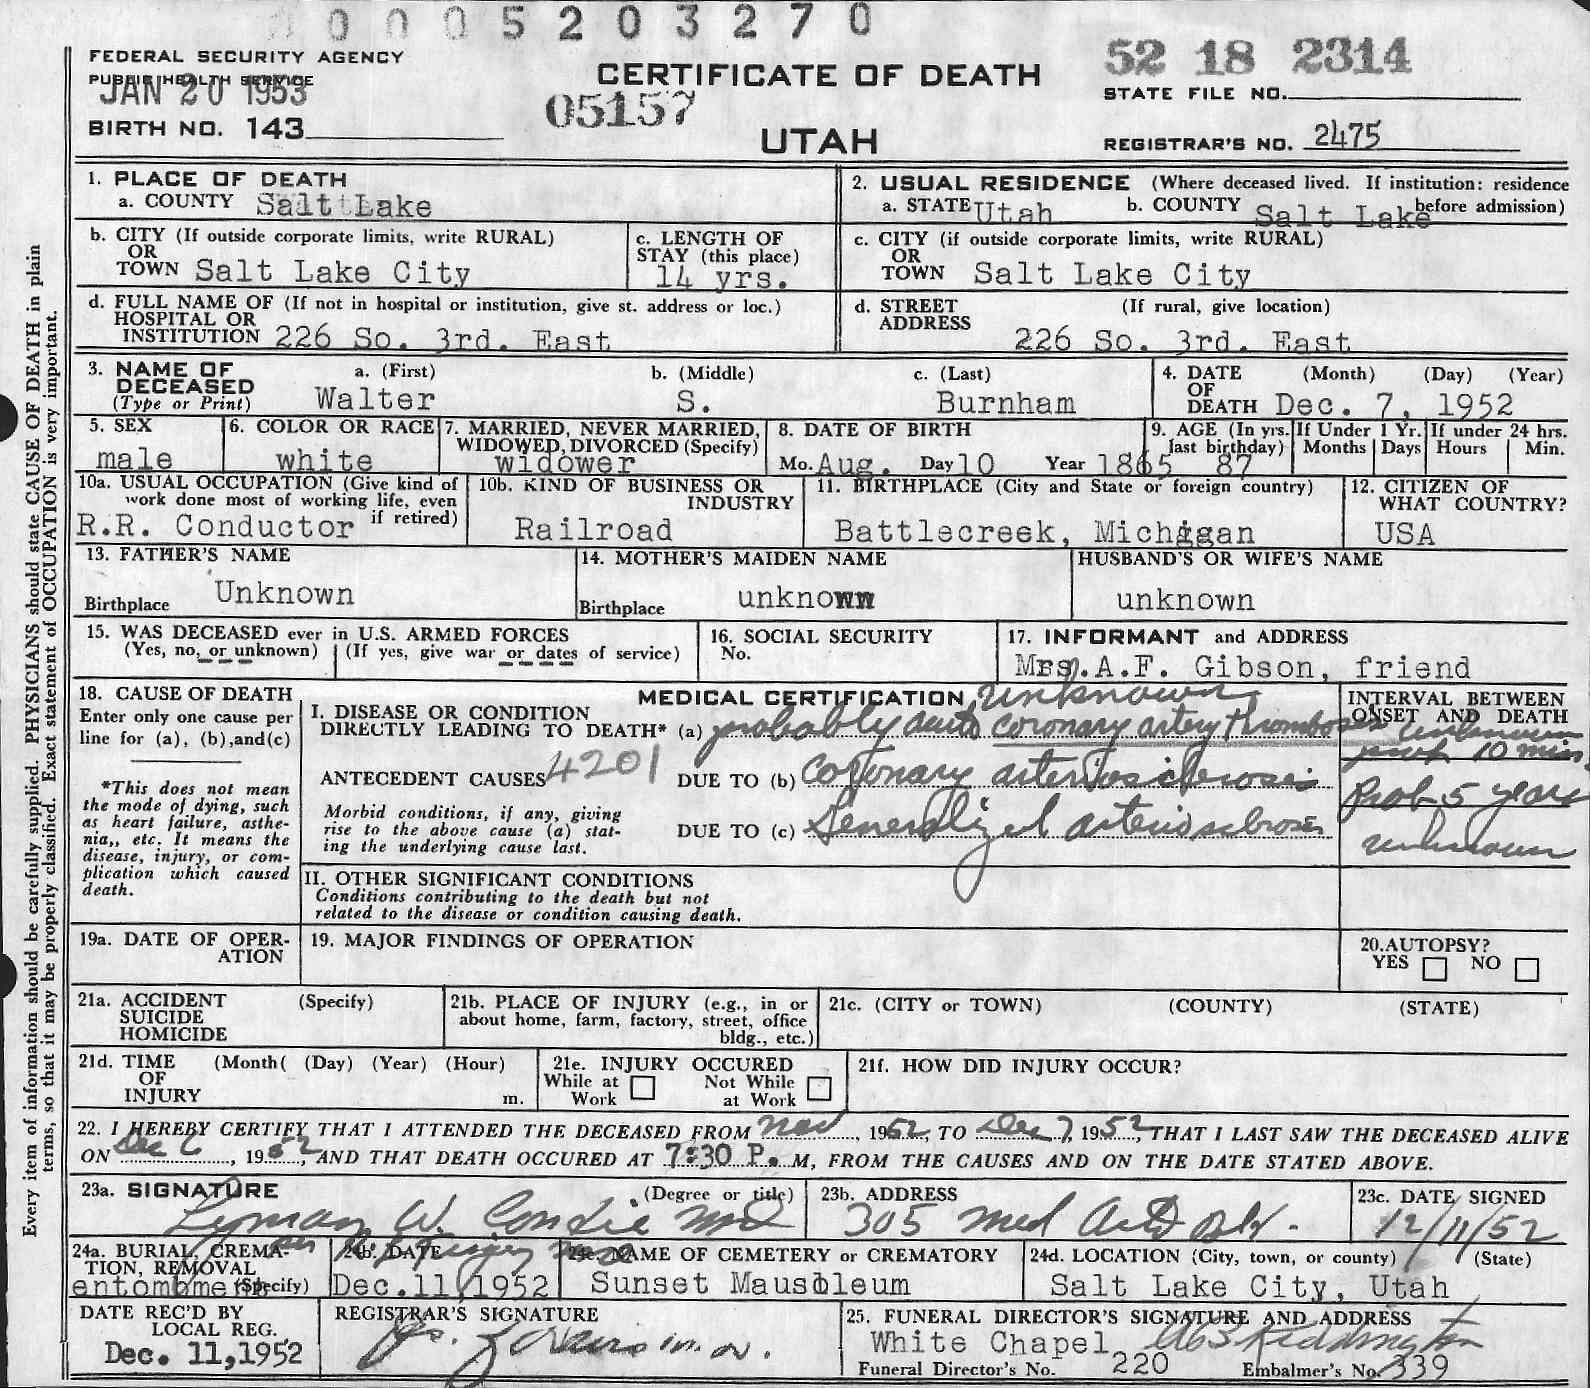 0005203270
FEDERAL SECURITY AGENCY
PUBLIC HEALTH SERVICE
JAN 20 1953
BIRTH NO. 143
CERTIFICATE OF DEATH
05157
UTAH
52 18 2314
STATE FILE NO.
REGISTRAR'S NO. 2475
Every item of information should be carefully supplied. PHYSICIANS should state CAUSE OF DEATH in plain
terms, so that it may be properly classified. Exact statement of OCCUPATION is very important.
1. PLACE OF DEATH
a. COUNTY Salt Lake
2. USUAL RESIDENCE (Where deceased lived. If institution: residence
before admission)
a. STATE Utah b. COUNTY Salt Lake
b. CITY (If outside corporate limits, write RURAL)
OR
TOWN Salt Lake City
c. LENGTH OF
STAY (this place)
14 yrs.
c. CITY (if outside corporate limits, write RURAL)
OR
TOWN Salt Lake City
d. FULL NAME OF (If not in hospital or institution, give st. address or loc.)
HOSPITAL OR
INSTITUTION 226 So. 3rd. East
d. STREET (If rural, give location)
ADDRESS
226 So. 3rd. East
3. NAME OF a. (First) b. (Middle) c. (Last)
DECEASED
(Type or Print) Walter S. Burnham
4. DATE (Month) (Day) (Year)
OF
DEATH Dec. 7, 1952
5. SEX
male
6. COLOR OR RACE
white
7. MARRIED, NEVER MARRIED,
WIDOWED, DIVORCED (Specify)
widower
8. DATE OF BIRTH
Mo. Aug. Day 10 Year 1865
9. AGE (In yrs.
last birthday)
87
If Under 1 Yr.
Months Days
If under 24 hrs.
Hours Min.
10a. USUAL OCCUPATION (Give kind of
work done most of working life, even
if retired)
R.R. Conductor
10b. KIND OF BUSINESS OR
INDUSTRY
Railroad
11. BIRTHPLACE (City and State or foreign country)
Battlecreek, Michigan
12. CITIZEN OF
WHAT COUNTRY?
USA
13. FATHER'S NAME
Unknown
Birthplace
14. MOTHER'S MAIDEN NAME
unknown
Birthplace
HUSBAND'S OR WIFE'S NAME
unknown
15. WAS DECEASED ever in U.S. ARMED FORCES
(Yes, no, or unknown) (If yes, give war or dates of service)
16. SOCIAL SECURITY
No.
17. INFORMANT and ADDRESS
Mrs. A.F. Gibson, friend
18. CAUSE OF DEATH
Enter only one cause per
line for (a), (b), and (c)
*This does not mean
the mode of dying, such
as heart failure, asthe-
nia,, etc. It means the
disease, injury, or com-
plication which caused
death.
MEDICAL CERTIFICATION unknown
I. DISEASE OR CONDITION
DIRECTLY LEADING TO DEATH* (a) probably acute coronary artery thrombosis
ANTECEDENT CAUSES 4201 DUE TO (b) Coronary arteriosclerosis
Morbid conditions, if any, giving
rise to the above cause (a) stat-
ing the underlying cause last.
DUE TO (c) Generalized arteriosclerosis
INTERVAL BETWEEN
ONSET AND DEATH
unknown
prob 10 min.
Prob 5 years
unknown
II. OTHER SIGNIFICANT CONDITIONS
Conditions contributing to the death but not
related to the disease or condition causing death.
19a. DATE OF OPER-
ATION
19. MAJOR FINDINGS OF OPERATION
20. AUTOPSY?
YES NO
21a. ACCIDENT (Specify)
SUICIDE
HOMICIDE
21b. PLACE OF INJURY (e.g., in or
about home, farm, factory, street, office
bldg., etc.)
21c. (CITY or TOWN) (COUNTY) (STATE)
21d. TIME (Month( (Day) (Year) (Hour)
OF
INJURY m.
21e. INJURY OCCURED
While at Not While
Work at Work
21f. HOW DID INJURY OCCUR?
22. I HEREBY CERTIFY THAT I ATTENDED THE DECEASED FROM Nov, 1952, TO Dec 7, 1952, THAT I LAST SAW THE DECEASED ALIVE
ON Dec 6, 1952, AND THAT DEATH OCCURED AT 7:30 P. M, FROM THE CAUSES AND ON THE DATE STATED ABOVE.
23a. SIGNATURE (Degree or title)
Lyman W. Condie MD
23b. ADDRESS
305 Med Arts Blk.
23c. DATE SIGNED
12/11/52
24a. BURIAL, CREMA-
TION, REMOVAL
(Specify)
entombment
24b. DATE
Dec.11,1952
24c. NAME OF CEMETERY or CREMATORY
Sunset Mausoleum
24d. LOCATION (City, town, or county) (State)
Salt Lake City, Utah
DATE REC'D BY
LOCAL REG.
Dec. 11,1952
REGISTRAR'S SIGNATURE
25. FUNERAL DIRECTOR'S SIGNATURE AND ADDRESS
White Chapel
Funeral Director's No. 220 Embalmer's No. 339